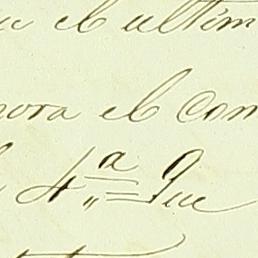 el ultim
ora el con
4.ª Que